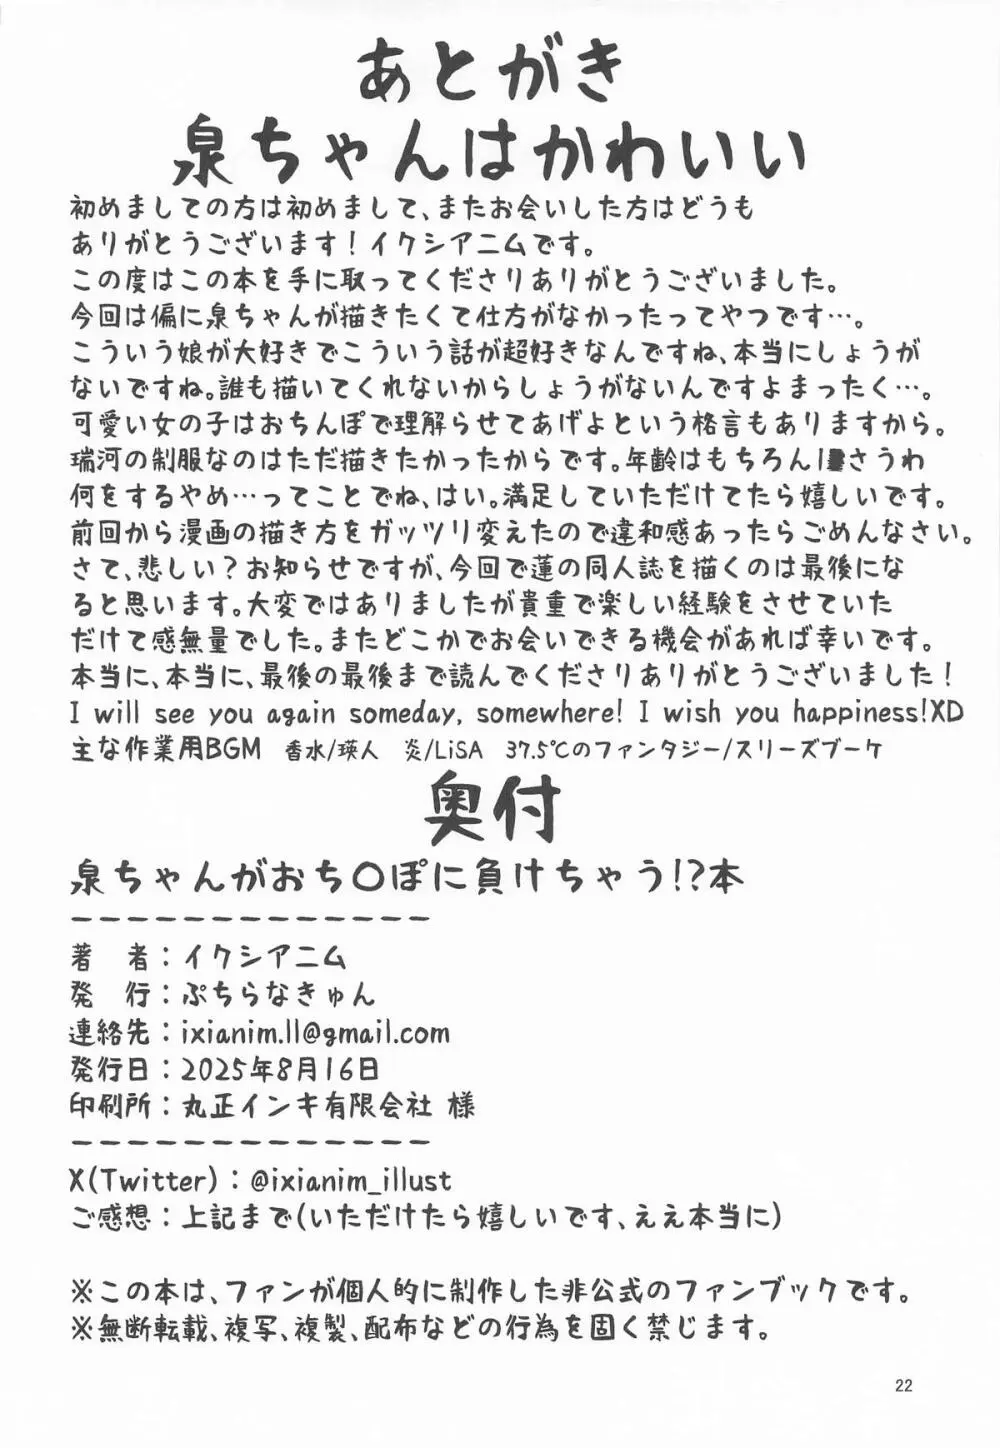 あとがき
泉ちゃんはかわいい
初めましての方は初めまして、またお会いした方はどうも
ありがとうございます！イクシアニムです。
この度はこの本を手に取ってくださりありがとうございました。
今回は偏に泉ちゃんが描きたくて仕方がなかったってやつです…。
こういう娘が大好きでこういう話が超好きなんですね、本当にしょうが
ないですね。誰も描いてくれないからしょうがないんですよまったく…。
可愛い女の子はおちんぽで理解らせてあげよという格言もありますから。
瑞河の制服なのはただ描きたかったからです。年齢はもちろん1さうわ
何をするやめ…ってことでね、はい。満足していただけてたら嬉しいです。
前回から漫画の描き方をガッツリ変えたので違和感あったらごめんなさい。
さて、悲しい？お知らせですが、今回で蓮の同人誌を描くのは最後にな
ると思います。大変ではありましたが貴重で楽しい経験をさせていた
だけて感無量でした。またどこかでお会いできる機会があれば幸いです。
本当に、本当に、最後の最後まで読んでくださりありがとうございました！
I will see you again someday, somewhere! I wish you happiness!XD
主な作業用BGM　香水/瑛人　炎/LiSA　37.5℃のファンタジー/スリーズブーケ
奥付
泉ちゃんがおち〇ぽに負けちゃう!?本
－－－－－－－－－－－－－
著　者：イクシアニム
発　行：ぷちらなきゅん
連絡先：ixianim.ll@gmail.com
発行日：2025年8月16日
印刷所：丸正インキ有限会社 様
－－－－－－－－－－－－－
X(Twitter)：@ixianim_illust
ご感想：上記まで(いただけたら嬉しいです、ええ本当に)
※この本は、ファンが個人的に制作した非公式のファンブックです。
※無断転載、複写、複製、配布などの行為を固く禁じます。
22